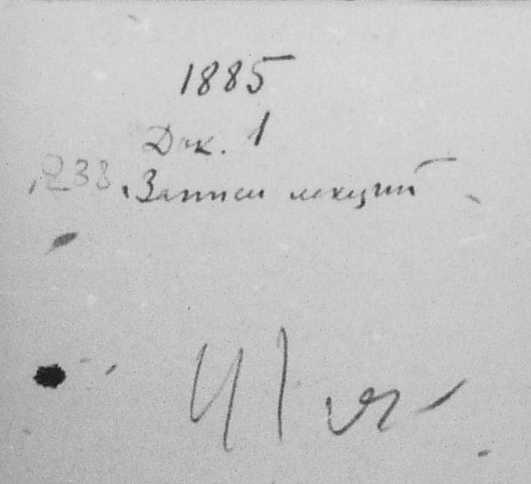 1885
Док. 1
233 Записи лекций
41